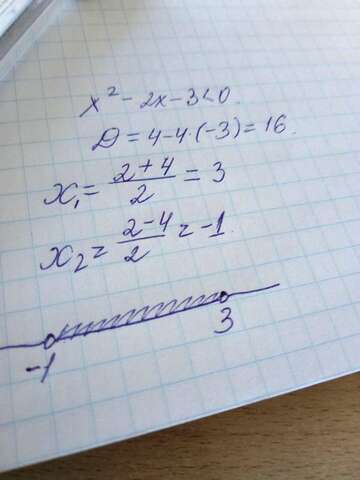 x² - 2x - 3 < 0.
D = 4 - 4 (-3) = 16.
x₁ = (2+4)/2 = 3
x₂ = (2-4)/2 = -1.
-1 3